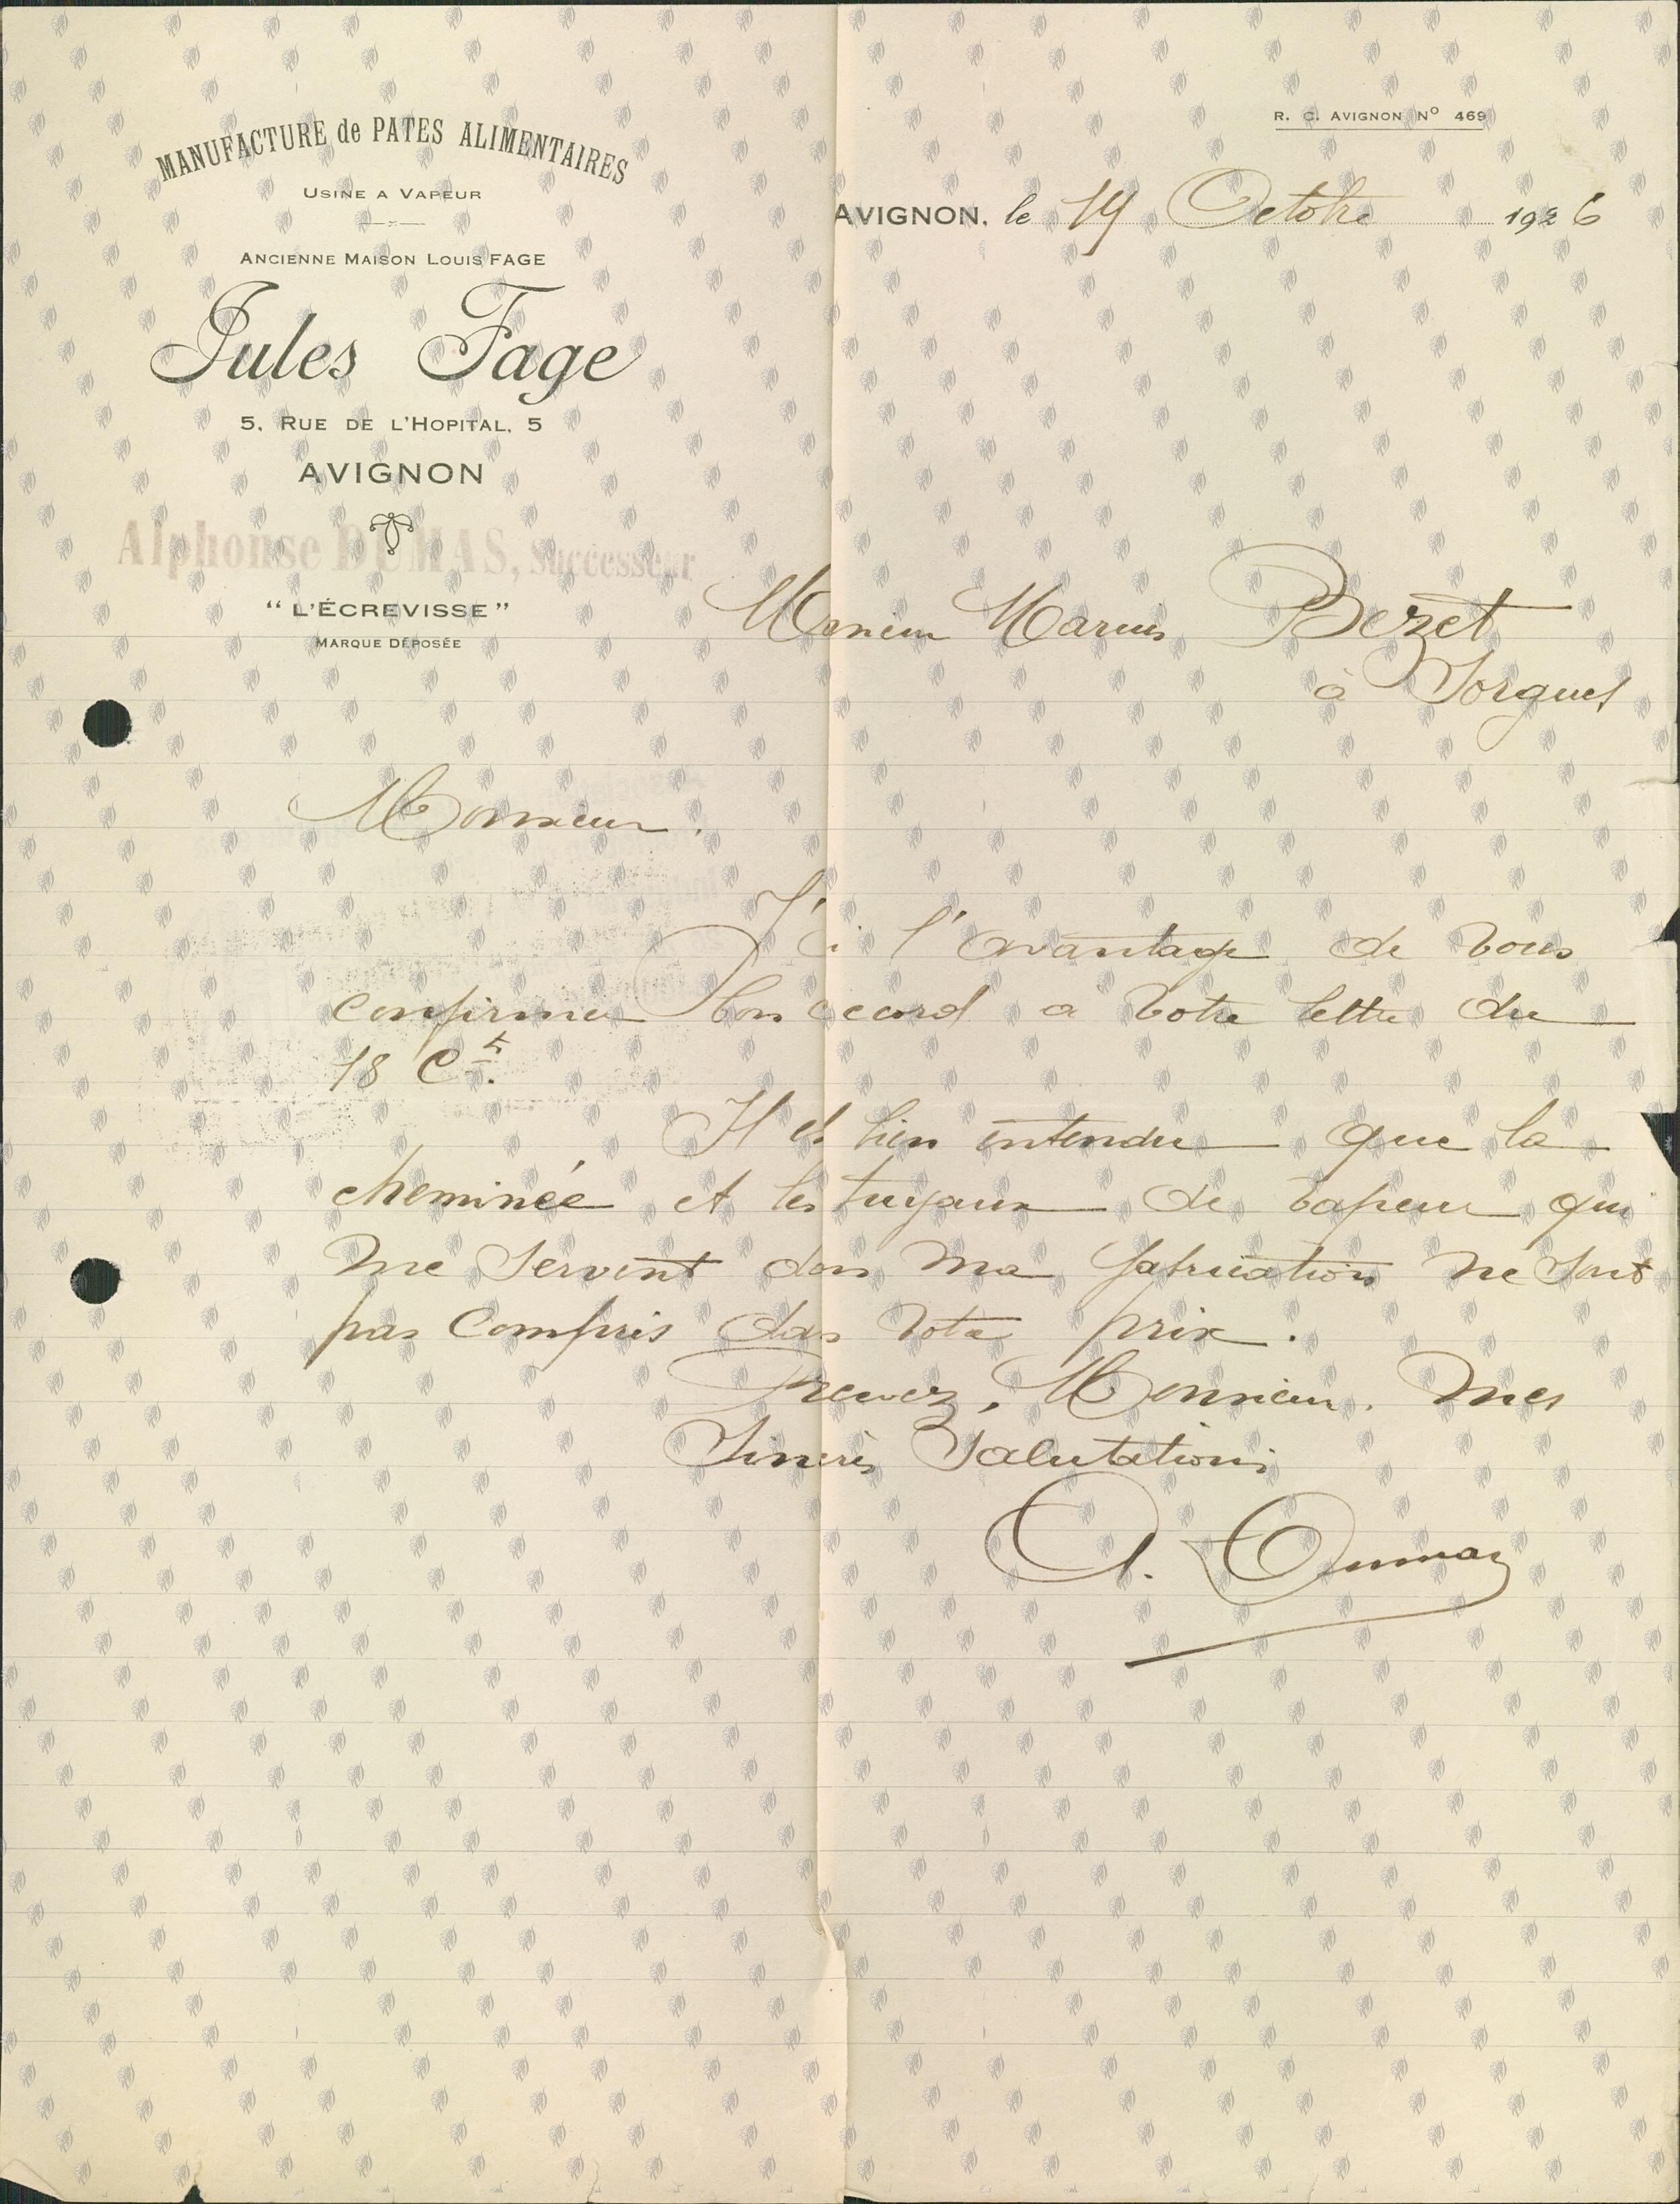 MANUFACTURE de PATES ALIMENTAIRES
USINE A VAPEUR
ANCIENNE MAISON LOUIS FAGE
Jules Fage
5, RUE DE L'HOPITAL, 5
AVIGNON
Alphonse DUMAS, Successeur
“ L'ÉCREVISSE ”
MARQUE DÉPOSÉE
R. C. AVIGNON Nº 469
AVIGNON, le 19 Octobre 1926
Monsieur Marius Bezet
à Sorgues
Monsieur.
J'ai l'avantage de vous
confirmer bon accord a votre lettre du
18 Ct.
Il est bien entendu que la
cheminée et les tuyaux de vapeur qui
me servent dans ma fabrication ne sont
pas compris dans votre prix.
Recevez, Monsieur, mes
Sincères Salutations
A. Dumas